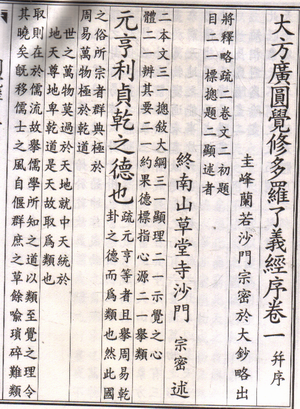 大方廣圓覺修多羅了義經序卷一 并序
圭峰蘭若沙門宗密於大鈔略出
將釋略疏二卷文二初題
目二一標總題二顯述者
終南山草堂寺沙門 宗密 述
二本文三一總敘大綱三一顯理二一示覺之心
體二一辨其要二一約果德標指心源二一舉類
元亨利貞乾之德也 疏元亨等者且舉周易乾
卦之德而為類也然此國
之俗所宗者群典極於
周易萬物極於乾道
世之萬物莫過於天地就中天統於
地天尊地卑乾道是天故取為類也
取則在於儒流故舉儒學所知之道以類至覺之理令
其曉矣旣移儒士之風自偃群庶之草餘喻瑣碎難類